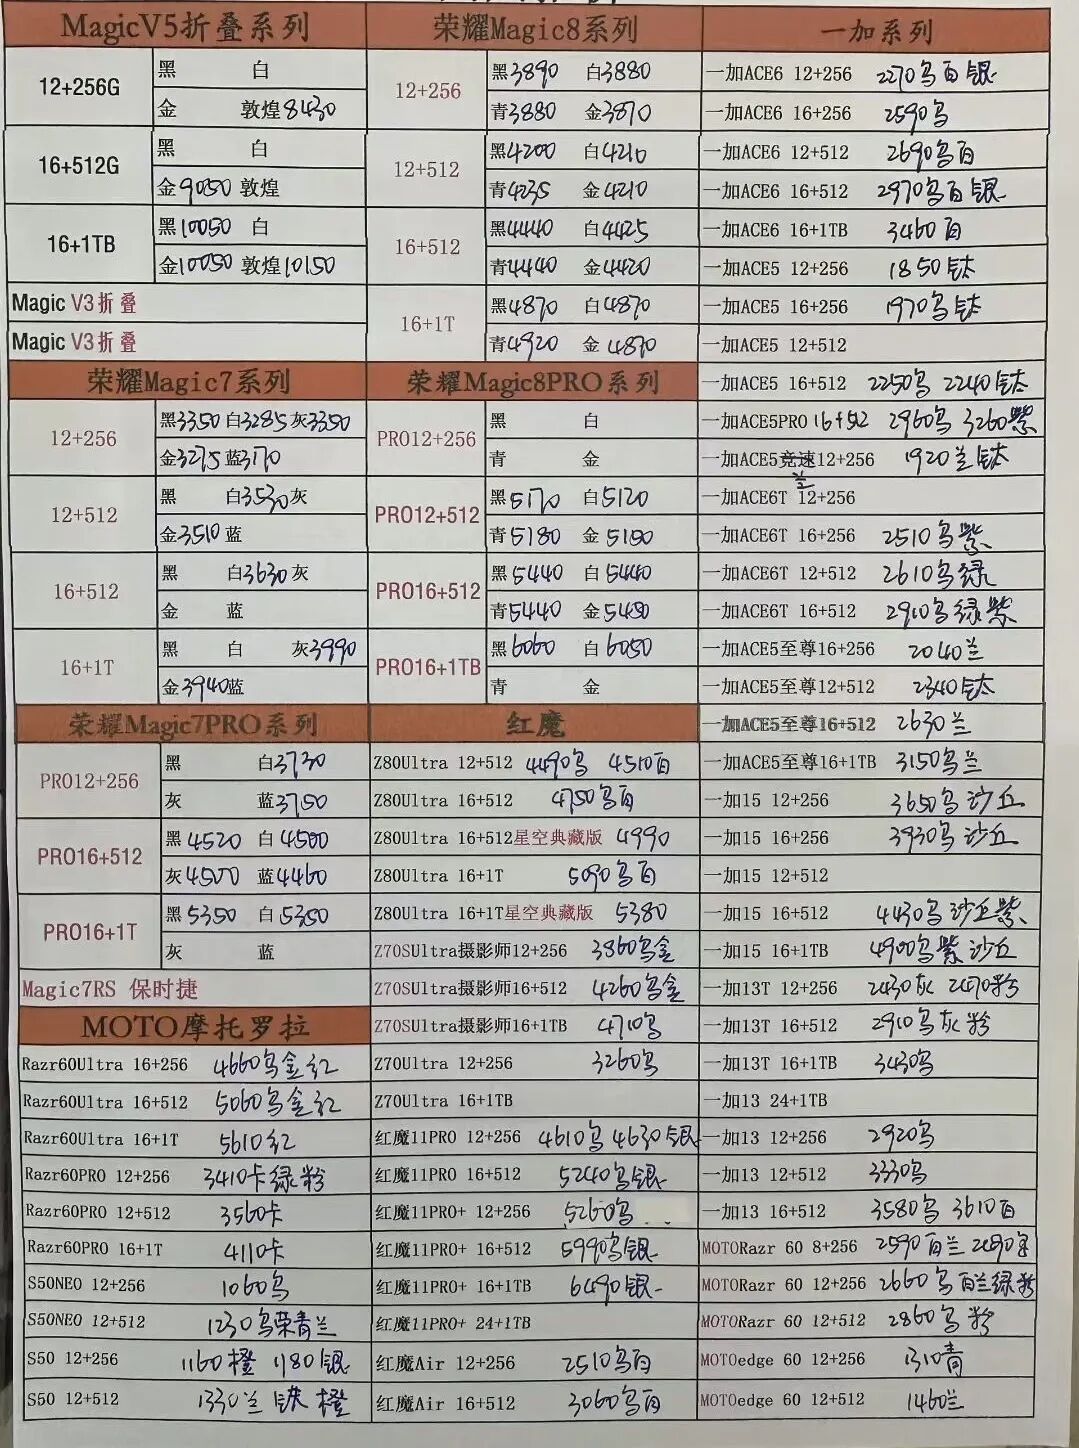 MagicV5折叠系列
12+256G
黑 白
金 敦煌8430
16+512G
黑 白
金9050 敦煌
16+1TB
黑10050 白
金10050 敦煌10150
Magic V3折叠
Magic V3折叠
荣耀Magic7系列
12+256
黑3350 白3285 灰3350
金3275 蓝3170
12+512
黑 白3530 灰
金3510 蓝
16+512
黑 白3630 灰
金 蓝
16+1T
黑 白 灰3990
金3940 蓝
荣耀Magic7PRO系列
PRO12+256
黑 白3730
灰 蓝3750
PRO16+512
黑4520 白4500
灰4500 蓝4460
PRO16+1T
黑5350 白5350
灰 蓝
Magic7RS 保时捷
MOTO摩托罗拉
Razr60Ultra 16+256 4660乌金红
Razr60Ultra 16+512 5060乌金红
Razr60Ultra 16+1T 5610红
Razr60PRO 12+256 3410卡绿粉
Razr60PRO 12+512 3560卡
Razr60PRO 16+1T 4110卡
S50NEO 12+256 1060乌
S50NEO 12+512 1230乌荣青兰
S50 12+256 1160橙 1180银
S50 12+512 1330兰 铁 橙
荣耀Magic8系列
12+256
黑3890 白3880
青3880 金3870
12+512
黑4200 白4210
青4235 金4210
16+512
黑4440 白4425
青4440 金4420
16+1T
黑4870 白4870
青4920 金4870
荣耀Magic8PRO系列
PRO12+256
黑 白
青 金
PRO12+512
黑5170 白5120
青5180 金5100
PRO16+512
黑5440 白5440
青5440 金5480
PRO16+1TB
黑6060 白6050
青 金
红魔
Z80Ultra 12+512 4490乌 4510白
Z80Ultra 16+512 4750乌白
Z80Ultra 16+512星空典藏版 4990
Z80Ultra 16+1T 5090乌白
Z80Ultra 16+1T星空典藏版 5380
Z70SUltra摄影师12+256 3860乌金
Z70SUltra摄影师16+512 4260乌金
Z70SUltra摄影师16+1TB 4710乌
Z70Ultra 12+256 3260乌
Z70Ultra 16+1TB
红魔11PRO 12+256 4610乌 4630银
红魔11PRO 16+512 5240乌银
红魔11PRO+ 12+256 5260乌
红魔11PRO+ 16+512 5990乌银
红魔11PRO+ 16+1TB 6490银
红魔11PRO+ 24+1TB
红魔Air 12+256 2510乌白
红魔Air 16+512 3060乌白
一加系列
一加ACE6 12+256 2270乌白银
一加ACE6 16+256 2590乌
一加ACE6 12+512 2690乌白
一加ACE6 16+512 2970乌白银
一加ACE6 16+1TB 3460白
一加ACE5 12+256 1850钛
一加ACE5 16+256 1970乌钛
一加ACE5 12+512
一加ACE5 16+512 2250乌 2240钛
一加ACE5PRO 16+512 2960乌 3260紫
一加ACE5竞速12+256 1920兰钛
兰
一加ACE6T 12+256
一加ACE6T 16+256 2510乌紫
一加ACE6T 12+512 2610乌绿
一加ACE6T 16+512 2910乌绿紫
一加ACE5至尊16+256 2040兰
一加ACE5至尊12+512 2340钛
一加ACE5至尊16+512 2630兰
一加ACE5至尊16+1TB 3150乌兰
一加15 12+256 3650乌沙丘
一加15 16+256 3930乌沙丘
一加15 12+512
一加15 16+512 4430乌沙丘紫
一加15 16+1TB 4900乌紫沙丘
一加13T 12+256 2430灰 2470粉
一加13T 16+512 2910乌灰粉
一加13T 16+1TB 3430乌
一加13 24+1TB
一加13 12+256 2920乌
一加13 12+512 3330乌
一加13 16+512 3580乌 3610白
MOTORazr 60 8+256 2590白兰
MOTORazr 60 12+256 2660乌白兰绿粉
MOTORazr 60 12+512 2860乌粉
MOTOedge 60 12+256 1310青
MOTOedge 60 12+512 1460兰